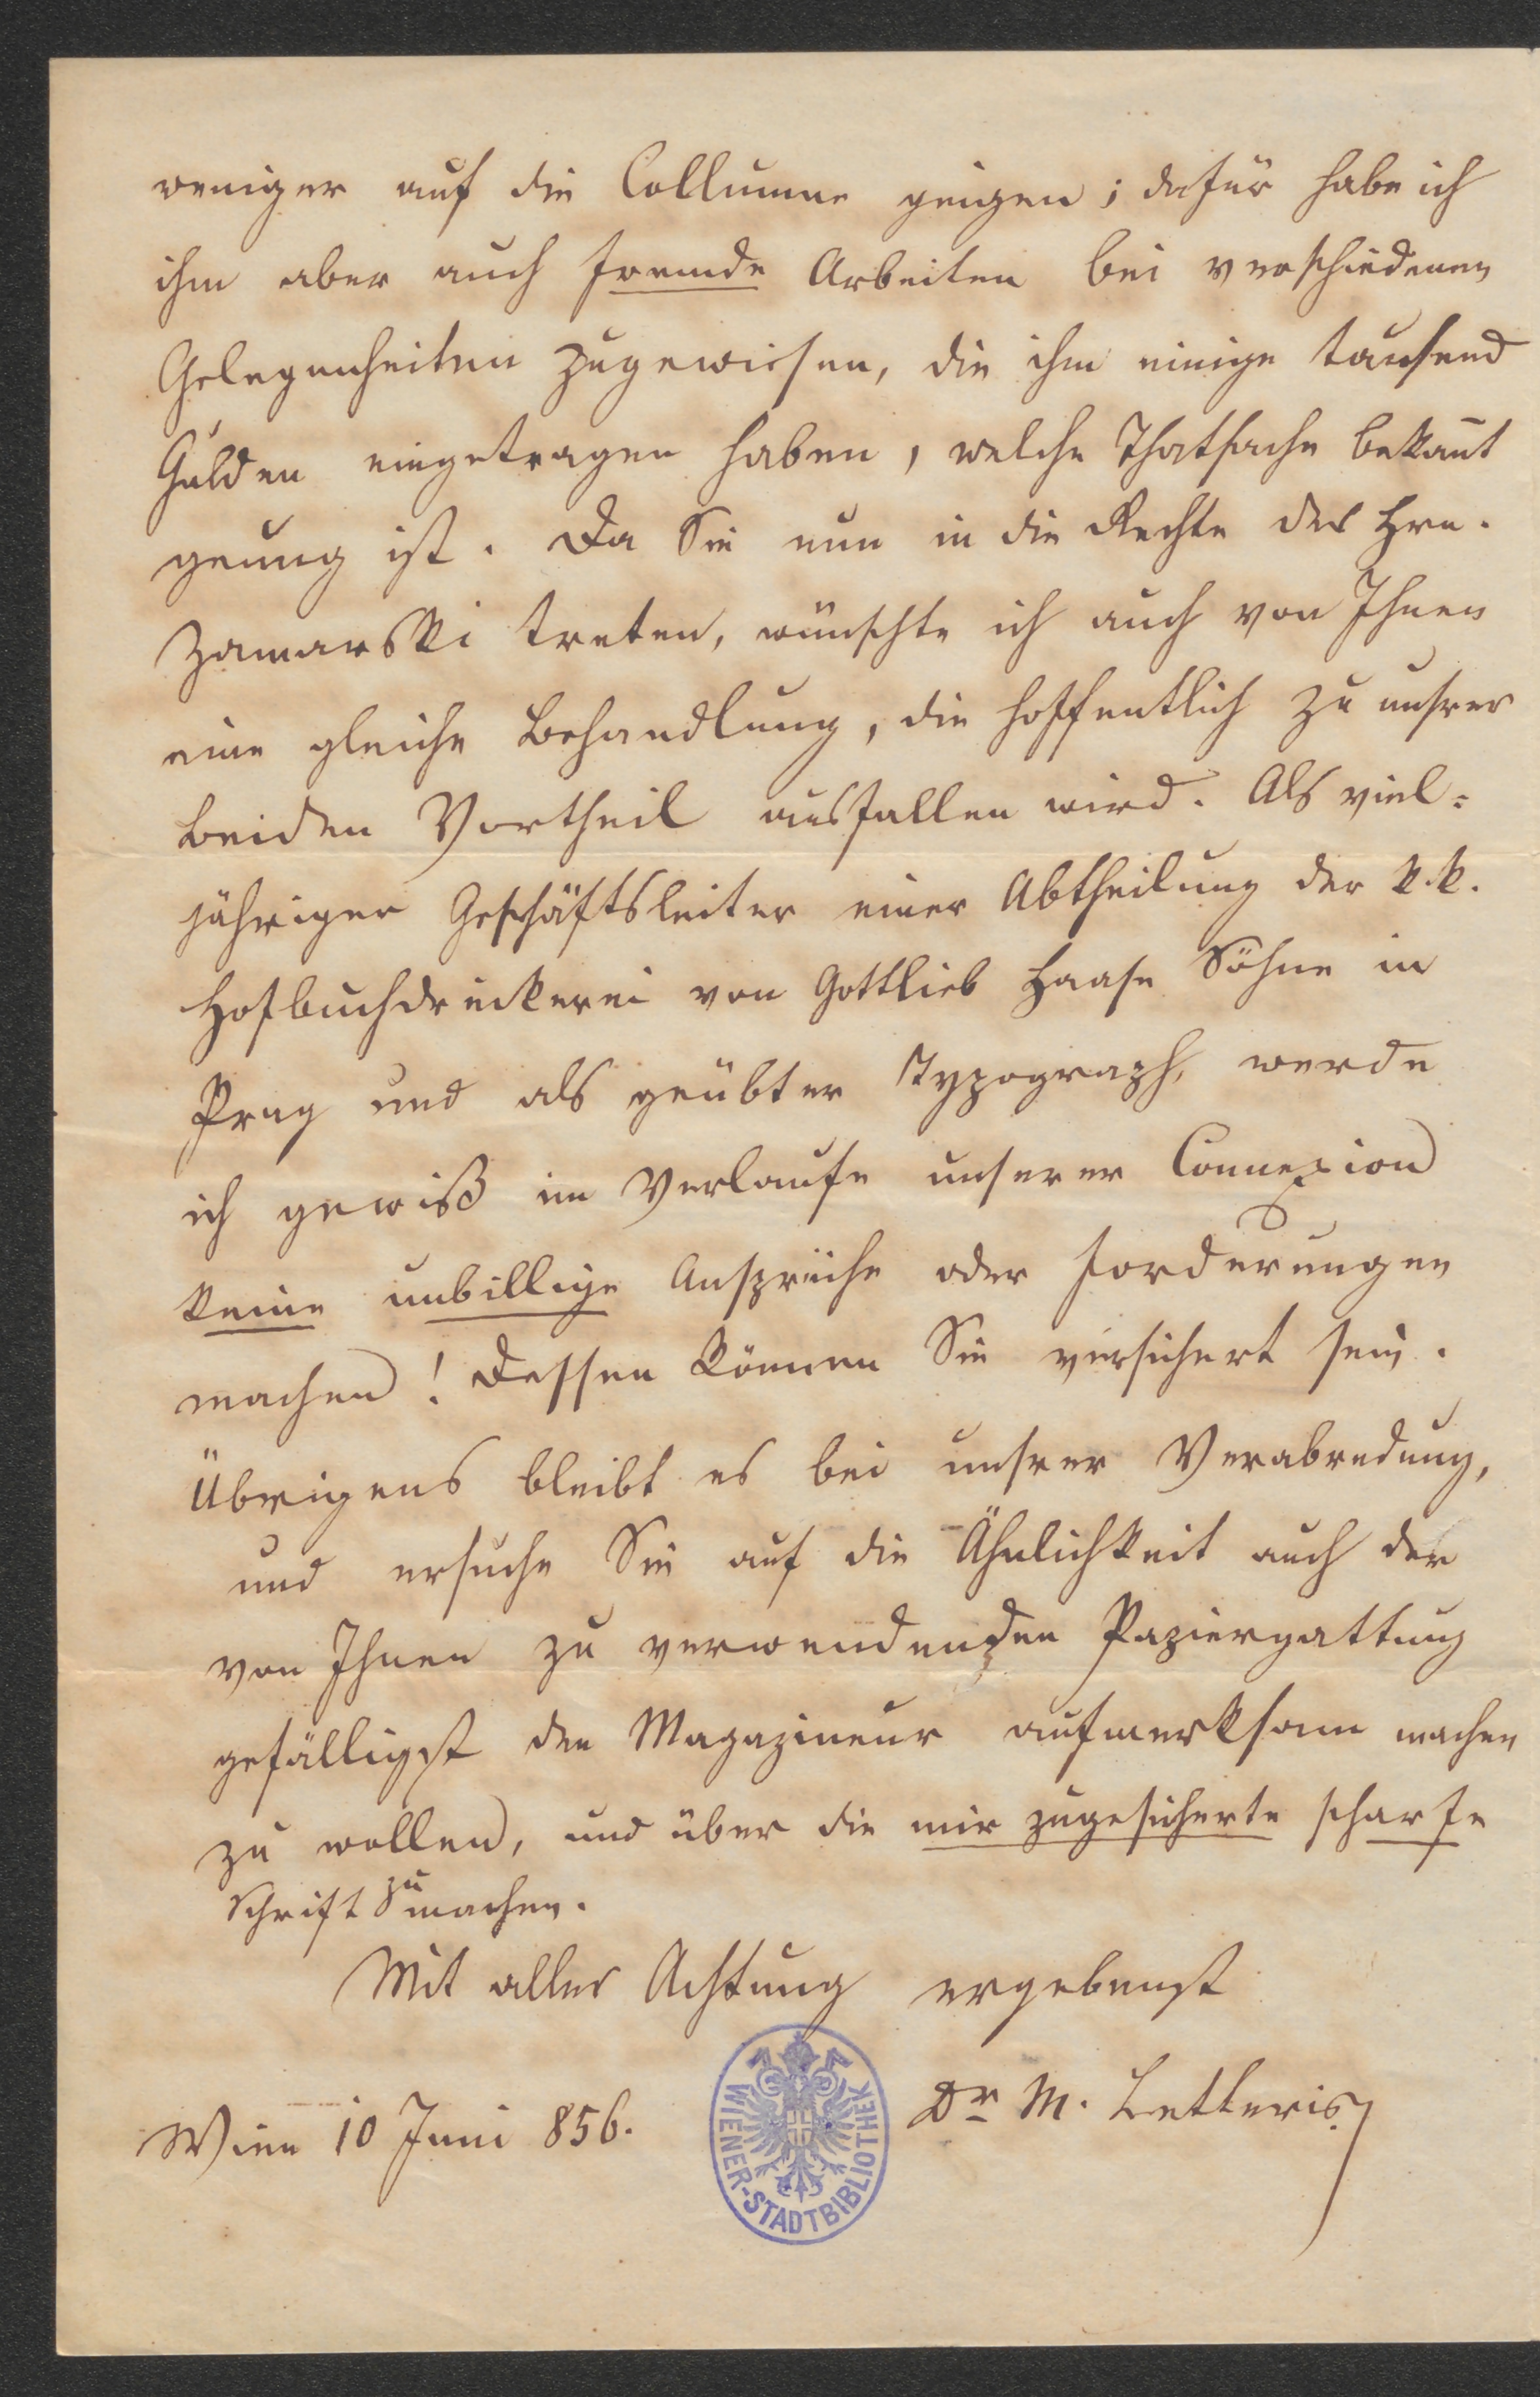 weniger auf die Collumne geigen; dafür habe ich
ihm aber auch fremde Arbeiten bei verschiedenen
Gelegenheiten zugewiesen, die ihm einige tausend
Gulden eingetragen haben, welche Thatsache bekan̄t
genug ist. Da Sie nun in die Rechte des Hrn.
Zamarski treten, wünschte ich auch von Ihnen
eine gleiche Behandlung, die hoffentlich zu unsrer
beiden Vortheil ausfallen wird. Als viel=
jähriger Geschäftsleiter einer Abtheilung der k.k.
Hofbuchdruckerei von Gottlieb Haase Söhne in
Prag und als geübter Typograph, werde
ich gewiß im Verlaufe unserer Connexion
keine unbillige Ansprüche oder Forderungen
machen! Dessen können Sie versichert sein.
Übrigens bleibt es bei unsrer Verabredung,
und ersuche Sie auf die Ähnlichkeit auch der
von Ihnen zu verwendenden Papiergattung
gefälligst den Magazineur aufmerksam machen
zu wollen, und über die mir zugesicherte scharfe
Schrift zu machen.
Mit aller Achtung ergebenst
Dr M. Letteris
Wien 10 Juni 856.
WIENER-STADTBIBLIOTHEK